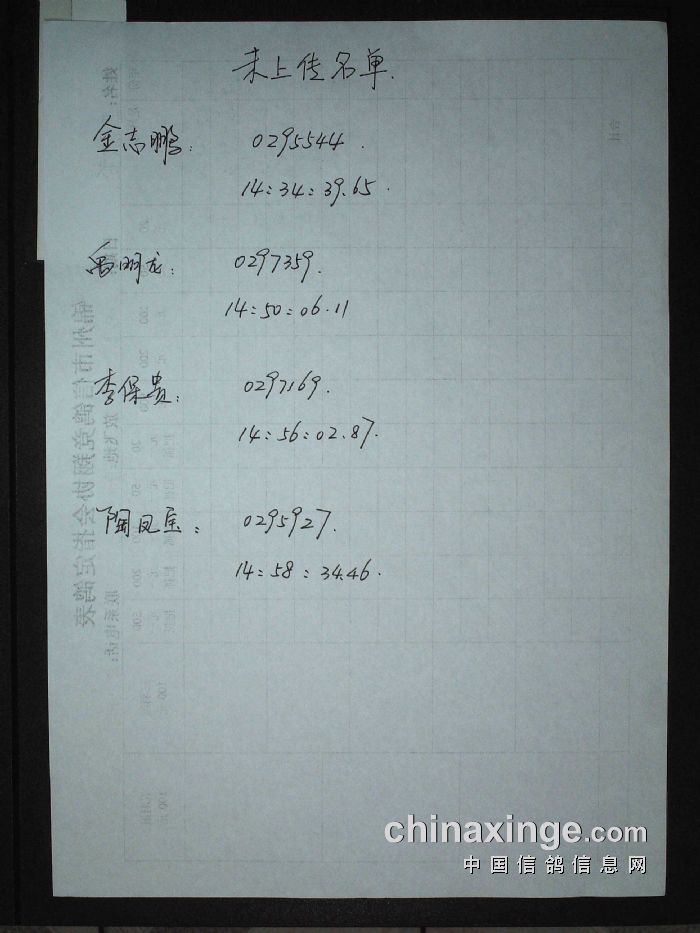 未上传名单.
金志鹏: 0295544.
14:34:39.65.
禹明龙: 0297359.
14:50:06.11
李保贵: 0297169.
14:56:02.87.
陶凤宝: 0295927.
14:58:34.46.
chinaxinge.com
中国信鸽信息网